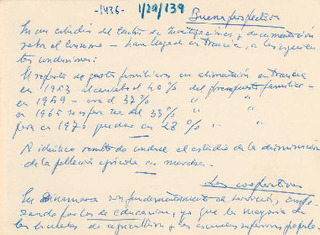 -1436- 1/29/139
Buena perspectiva
En un estudio del Centro de Investigaciones y documentación
sobre el consumo - han llegado en Francia, a las siguientes
conclusiones:
El reporte de gastos familiares en alimentación en Francia
en 1953 alcanzaba el 40% del presupuesto familiar -
en 1959 - era el 37% " "
en 1965 no será más del 33% " "
pero en 1970 quedará en 28% " "
A idéntico resultado conduce el estudio de la disminución
de la población agrícola en marcha.
Las cooperativas
En Dinamarca son fundamentalmente al servicio,
zando por los de educación, ya que la mayoría de
las escuelas de agricultura y las escuelas superiores